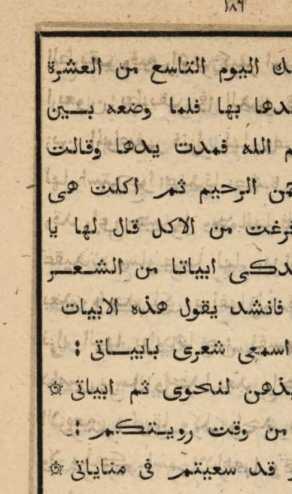 ١٨٩
ك اليوم التاسع من العشرة
دها بها فلما وضعه بين
م الله فمدت يدها وقالت
من الرحيم ثم اكلت هى
فرغت من الاكل قال لها يا
دكى ابياتا من الشعر
فانشد يقول هذه الابيات
اسمعى شعرى بابياتى :
ذهن لنحوى ثم ابياتى ۞
من وقت رويتكم :
قد سعيتم فى مناياتى ۞